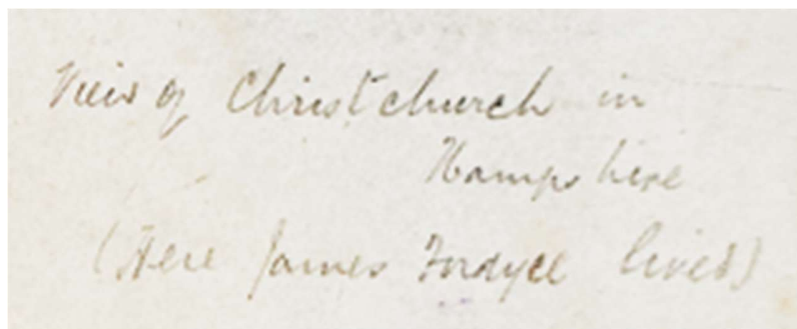 View of Christchurch in
Hampshire
(Here James Fordyce lived)